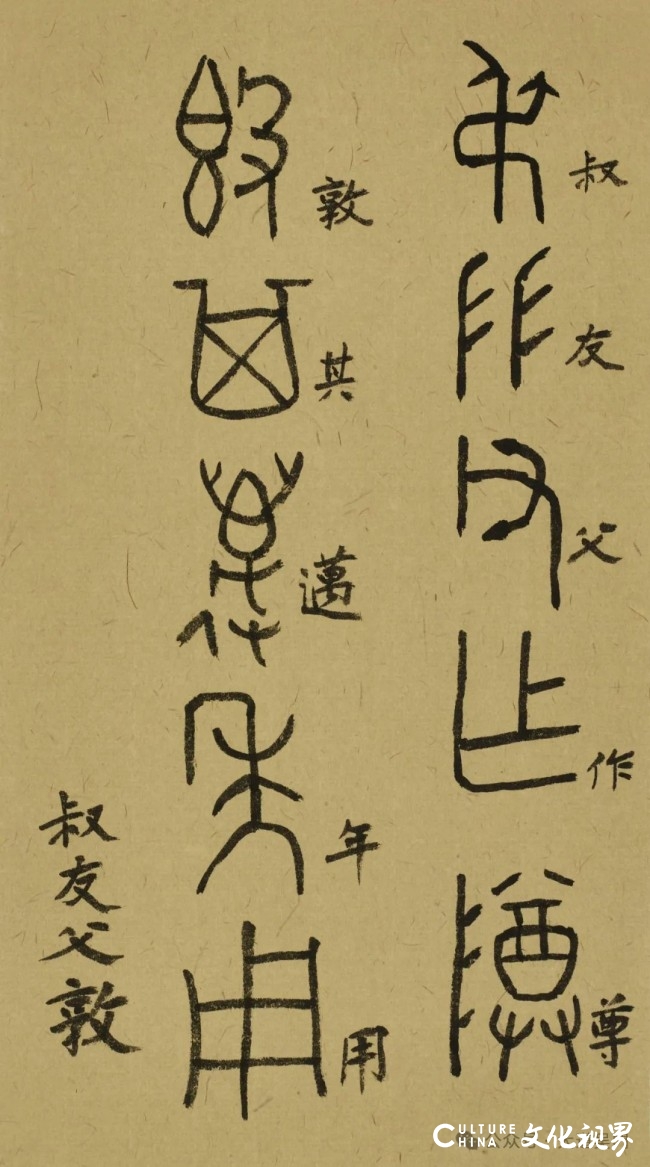 叔友父作尊
敦其邁年用
叔友父敦
CULTURE CHINA 文化视界
公众号